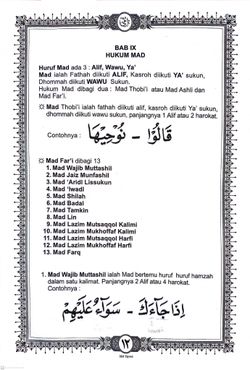 BAB IX
HUKUM MAD
Huruf Mad ada 3 : Alif, Wawu, Ya'
Mad ialah Fathah diikuti ALIF, Kasroh diikuti YA' sukun,
Dhommah diikuti WAWU Sukun.
Hukum Mad dibagi dua : Mad Thobi'i atau Mad Ashli dan
Mad Far'i.
Mad Thobi'i ialah fathah diikuti alif, kasroh diikuti Ya' sukun,
Dhommah diikuti wawu sukun, panjangnya 1 Alif atau 2 harokat.
Contohnya : قَالُوْا - نُوْحِيْهَا
Mad Far'i dibagi 13
1. Mad Wajib Muttashil
2. Mad Jaiz Munfashil
3. Mad 'Aridi Lissukun
4. Mad 'Iwadi
5. Mad Shilah
6. Mad Badal
7. Mad Tamkin
8. Mad Lin
9. Mad Lazim Mutsaqqol Kalimi
10. Mad Lazim Mukhoffaf Kalimi
11. Mad Lazim Mutsaqqol Harfi
12. Mad Lazim Mukhoffaf Harfi
13. Mad Farq
1. Mad Wajib Muttashil ialah Mad bertemu huruf hamzah
dalam satu kalimat. Panjangnya 2 Alif atau 4 harokat.
Contohnya :
اِذَا جَآءَكَ - سَوَآءٌ عَلَيْهِمْ
١٢